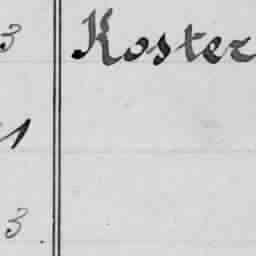 3 Koster
1
3